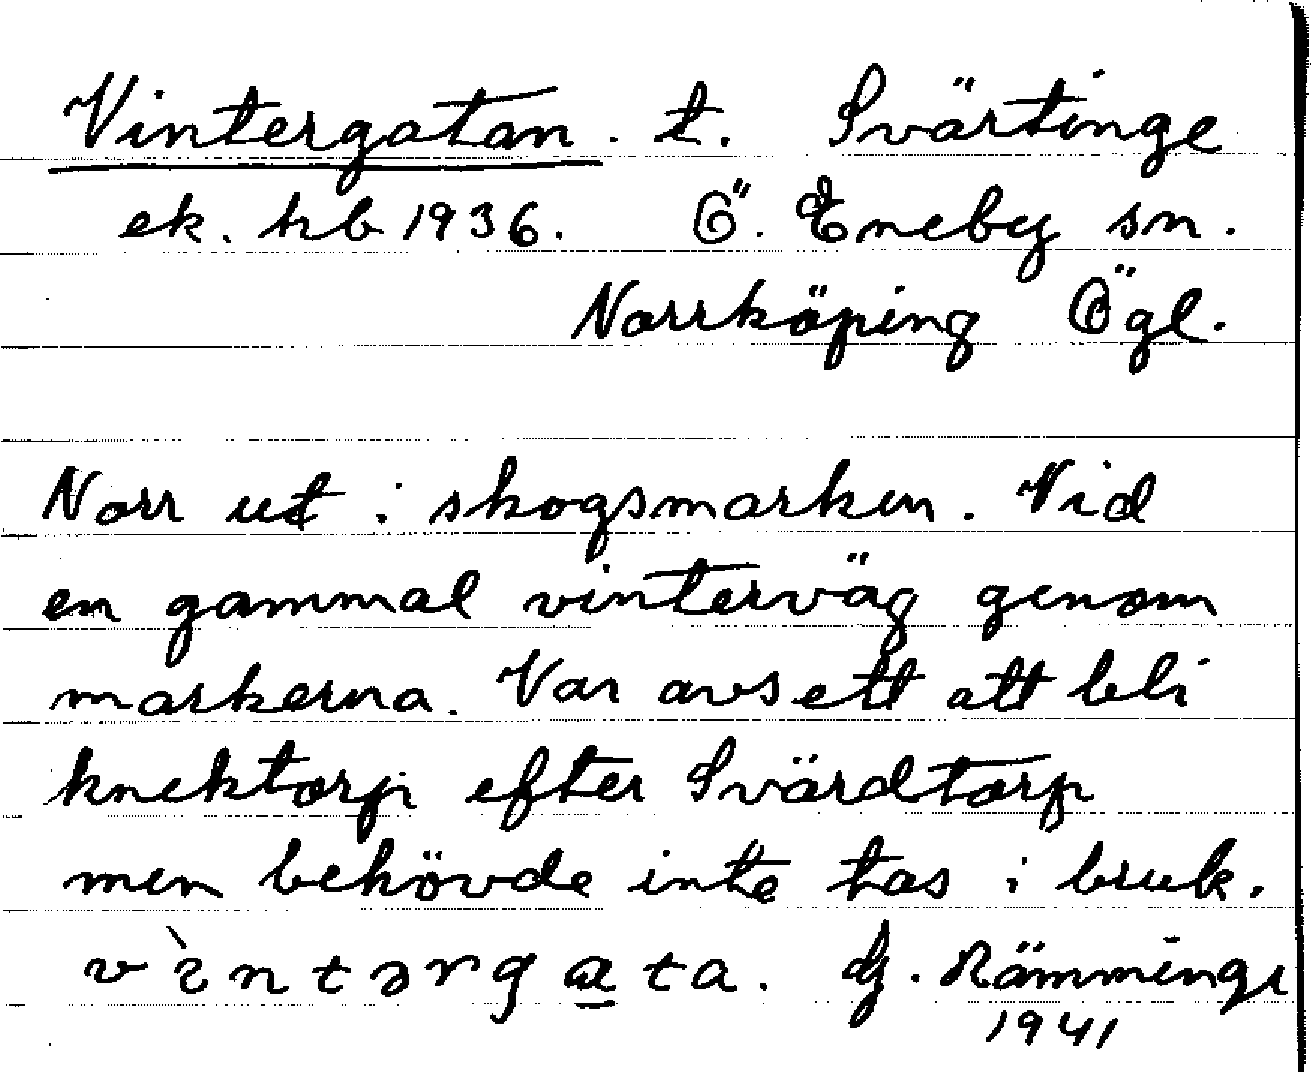 Vintergatan. t. Svärtinge
ek. hb 1936. Ö. Eneby sn.
Norrköping Ögl.
Norr ut i skogsmarken. Vid
en gammal vinterväg genom
markerna. Var avsett att bli
knektorp efter Svärdtorp
men behövde inte tas i bruk.
vìntərgata. G. Rämminge
1941